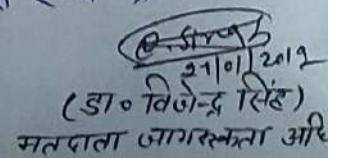 21/01/2012
(डा० विजेन्द्र सिंह)
मतदाता जागरूकता अभि